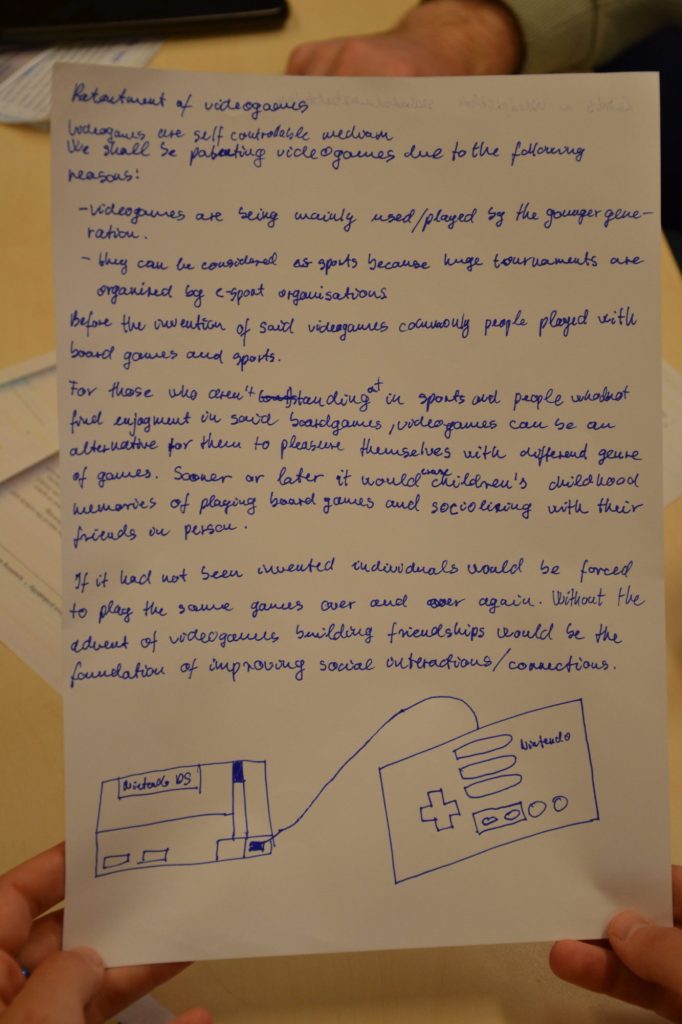 Patentment of videogames
Videogames are self controlable medium
We shall be patenting videogames due to the following
reasons:
- videogames are being mainly used/played by the younger gene-
ration.
- they can be considered as sports because huge tournaments are
organized by e-sport organisations
Before the invention of said videogames commonly people played with
board games and sports.
For those who aren't standing at in sports and people who
find enjoyment in said boardgames, videogames can be an
alternative for them to pleasure themselves with differend genre
of games. Sooner or later it would children's childhood
memories of playing board games and socializing with their
friends in person.
If it had not been invented individuals would be forced
to play the same games over and over again. Without the
advent of videogames building friendships would be the
foundation of improving social interactions/connections.
Nintendo DS
Nintendo